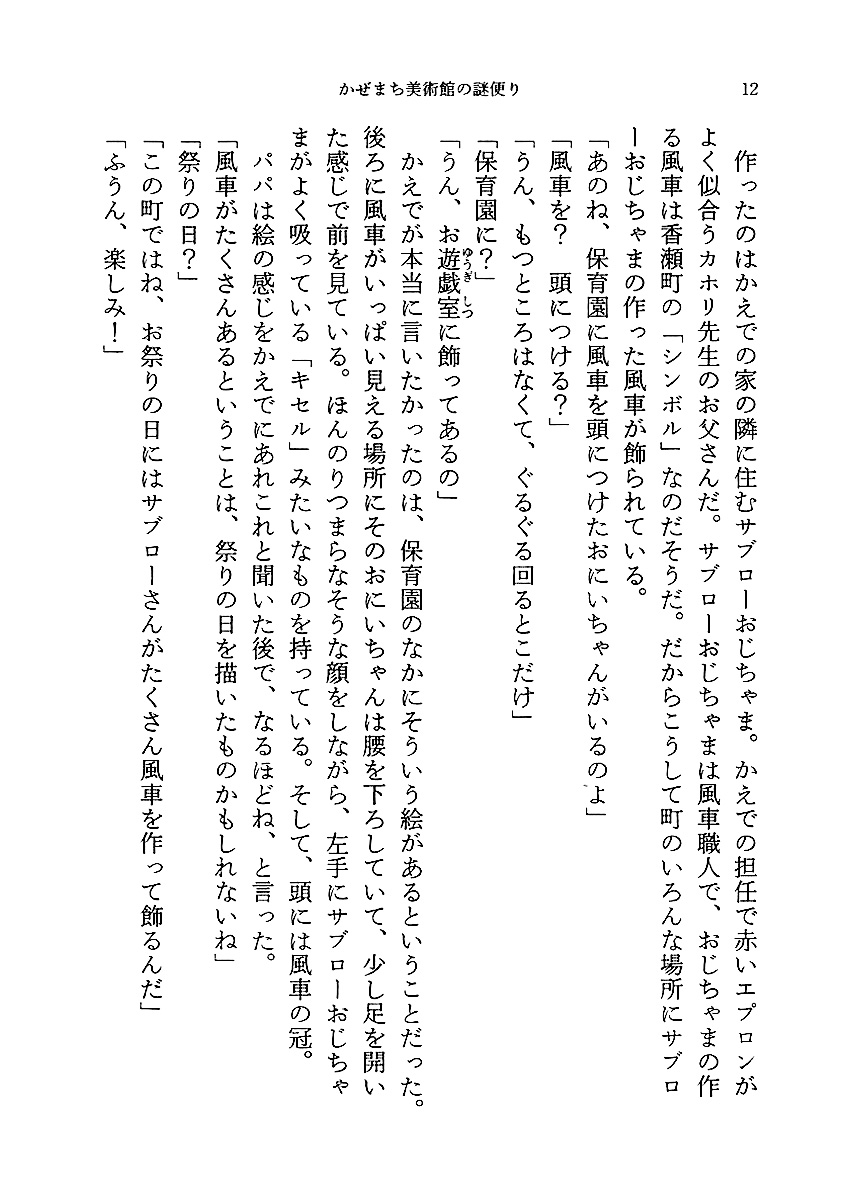 かぜまち美術館の謎便り
12
　作ったのはかえでの家の隣に住むサブローおじちゃま。かえでの担任で赤いエプロンが
よく似合うカホリ先生のお父さんだ。サブローおじちゃまは風車職人で、おじちゃまの作
る風車は香瀬町の「シンボル」なのだそうだ。だからこうして町のいろんな場所にサブロ
ーおじちゃまの作った風車が飾られている。
「あのね、保育園に風車を頭につけたおにいちゃんがいるのよ」
「風車を？　頭につける？」
「うん、もつところはなくて、ぐるぐる回るとこだけ」
「保育園に？」
「うん、お遊戯室に飾ってあるの」
ゆうぎしつ
　かえでが本当に言いたかったのは、保育園のなかにそういう絵があるということだった。
後ろに風車がいっぱい見える場所にそのおにいちゃんは腰を下ろしていて、少し足を開い
た感じで前を見ている。ほんのりつまらなそうな顔をしながら、左手にサブローおじちゃ
まがよく吸っている「キセル」みたいなものを持っている。そして、頭には風車の冠。
　パパは絵の感じをかえでにあれこれと聞いた後で、なるほどね、と言った。
「風車がたくさんあるということは、祭りの日を描いたものかもしれないね」
「祭りの日？」
「この町ではね、お祭りの日にはサブローさんがたくさん風車を作って飾るんだ」
「ふうん、楽しみ！」